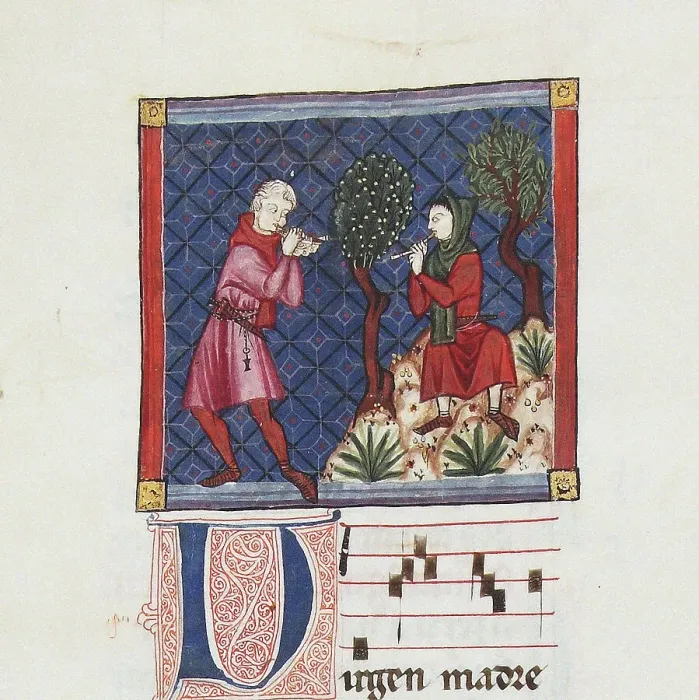 Virgen madre